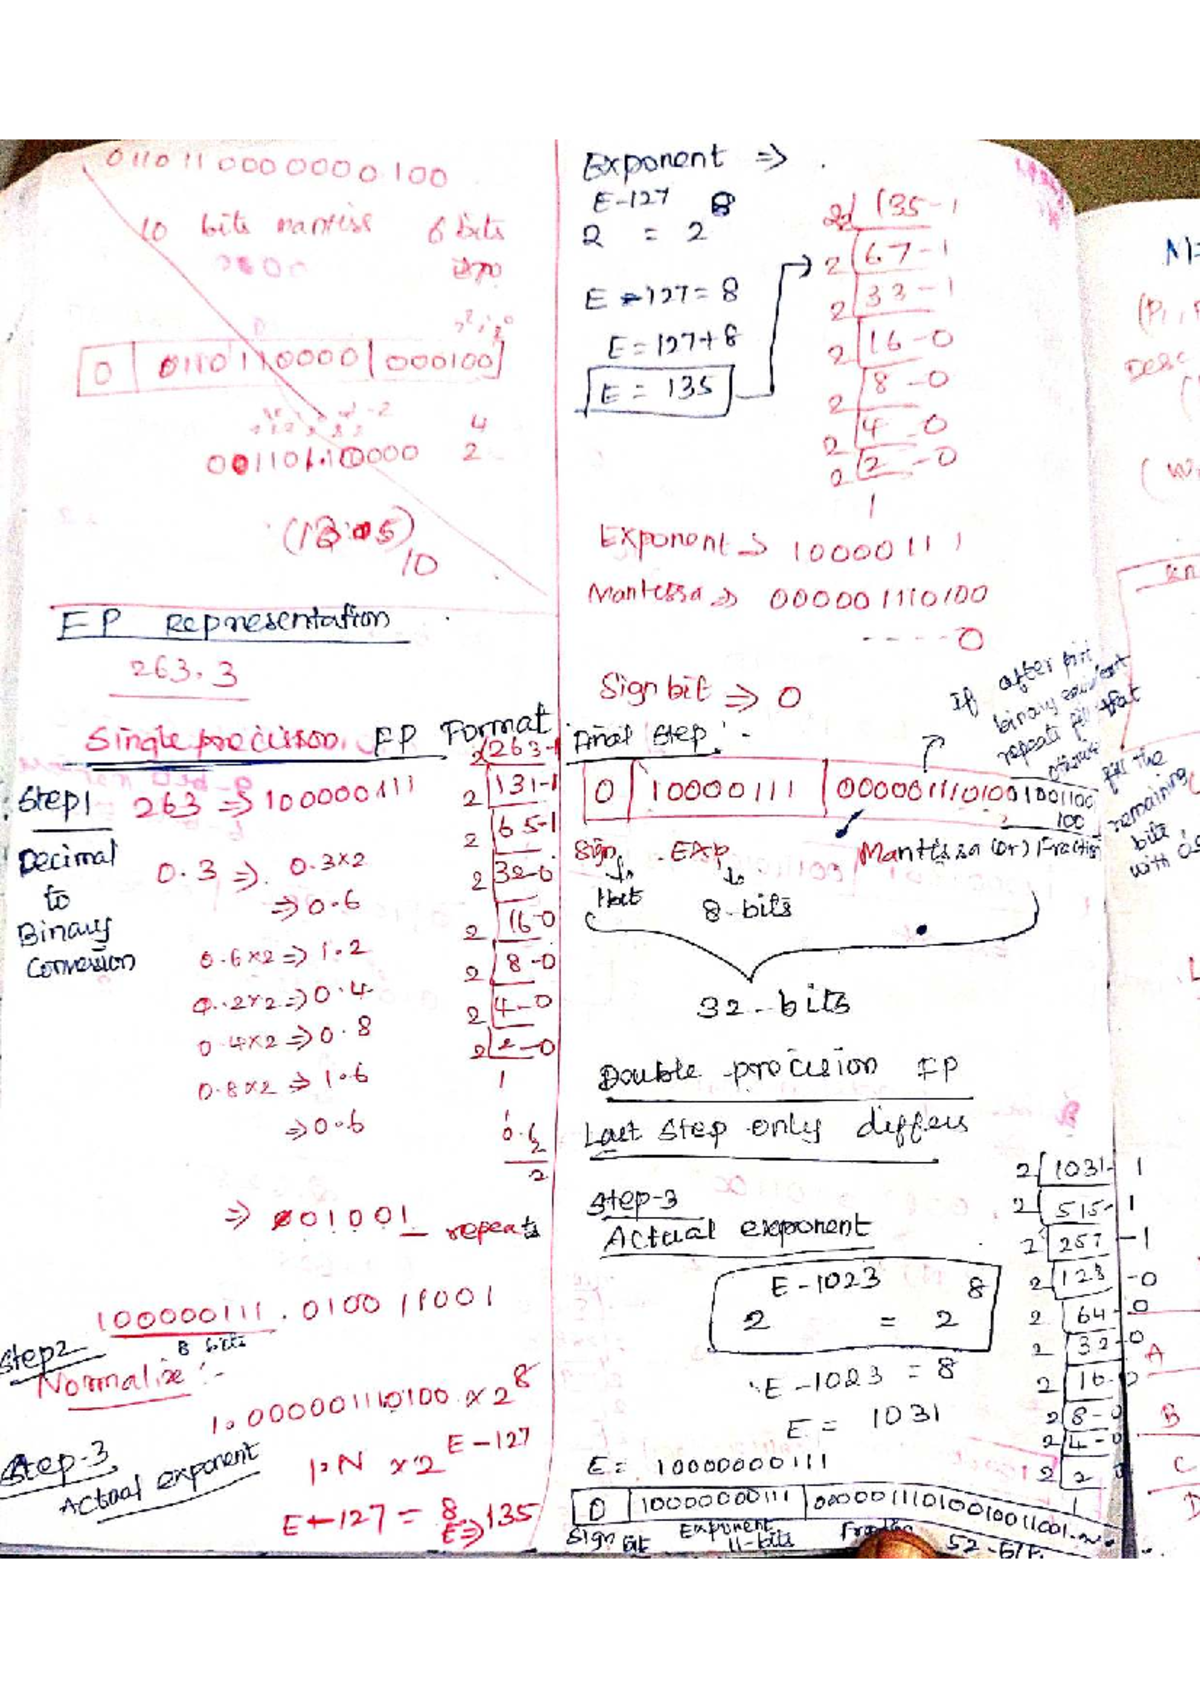 0110110000000100
10 bits mantiss 6 bits
0 0110110000 000100
001101.10000
4
2
10
FP Representation
263.3
Single precision FP Format
Step1
Decimal
to
Binary
Conversion
263 ⇒ 100000111
0.3 ⇒ 0.3x2
⇒ 0.6
0.6x2 ⇒ 1.2
0.2x2 ⇒ 0.4
0.4x2 ⇒ 0.8
0.8x2 ⇒ 1.6
⇒ 0.6
2 263-1
2 131-1
2 65-1
2 32-0
2 16-0
2 8-0
2 4-0
2 2-0
1
⇒ 01001 repeats
100000111.010011001
8 bits
Step2
Normalize :-
1.000001110100 x 2^8
Step-3
Actual exponent
1.N x 2^E-127
E-127 = 8
E ⇒ 135
Exponent ⇒
2^E-127 = 2^8
E-127 = 8
E = 127+8
E = 135
2 135-1
2 67-1
2 33-1
2 16-0
2 8-0
2 4-0
2 2-0
1
Exponent → 10000111
Mantessa ⇒ 000001110100
-----0
Sign bit ⇒ 0
If after
binary
repeats fill that
fill the
remaining
bits
with 0s
Final Step :-
0 10000111 00000111010011001100
100
Sign EXP Mantissa (or) Fraction
1 bit
8-bits
32-bits
Double precision FP
Last step only differs
Step-3
Actual exponent
2^E-1023 = 2^8
E-1023 = 8
E = 1031
2 1031-1
2 515-1
2 257-1
2 128-0
2 64-0
2 32-0
2 16-0
2 8-0
2 4-0
2 2 0
1
E = 10000000111
0 10000000111 0000011101001001 1001
Sign bit Exponent 11-bits 52-bit
A
B
C
D